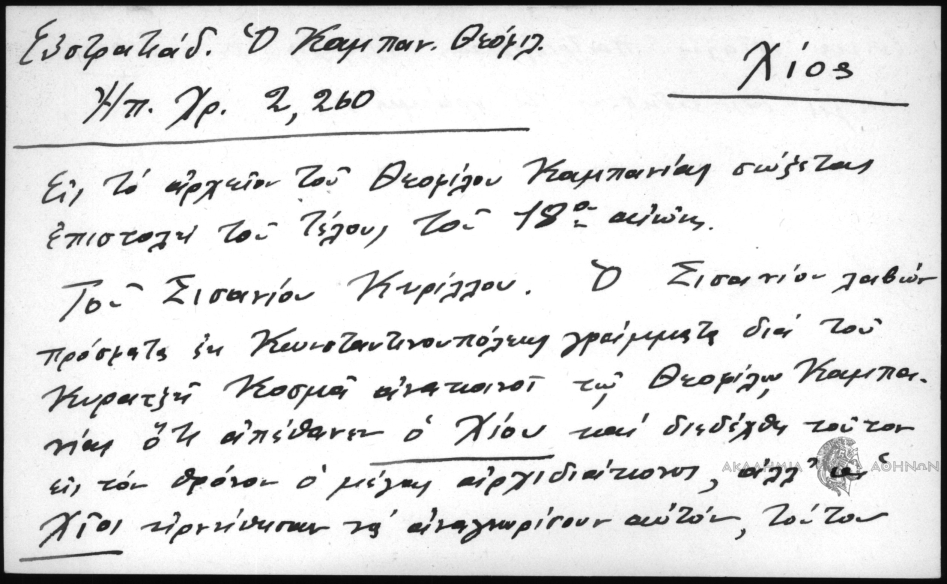 Εὐστρατιάδ. Ὁ Καμπαν. Θεόφιλ.
Χίος
Ἠπ. Χρ. 2, 260
Εἰς τό ἀρχεῖον τοῦ Θεοφίλου Καμπανίας σώζεται
ἐπιστολή τοῦ τέλους τοῦ 18ου αἰῶνος.
Τοῦ Σισανίου Κυρίλλου. Ὁ Σισανίου λαβών
πρόσφατα ἐκ Κωνσταντινουπόλεως γράμματα διά τοῦ
Κυρατζῆ Κοσμᾶ ἀνακοινοῖ τῷ Θεοφίλῳ Καμπα-
νίας ὅτι ἀπέθανεν ὁ Χίου καί διεδέχθη τοῦτον
εἰς τόν θρόνον ὁ μέγας ἀρχιδιάκονος, ἀλλ' οἱ
Χῖοι ἠρνήθησαν νά ἀναγνωρίσουν αὐτόν, τοῦτον
ΑΚΑΔΗΜΙΑ ΑΘΗΝΩΝ